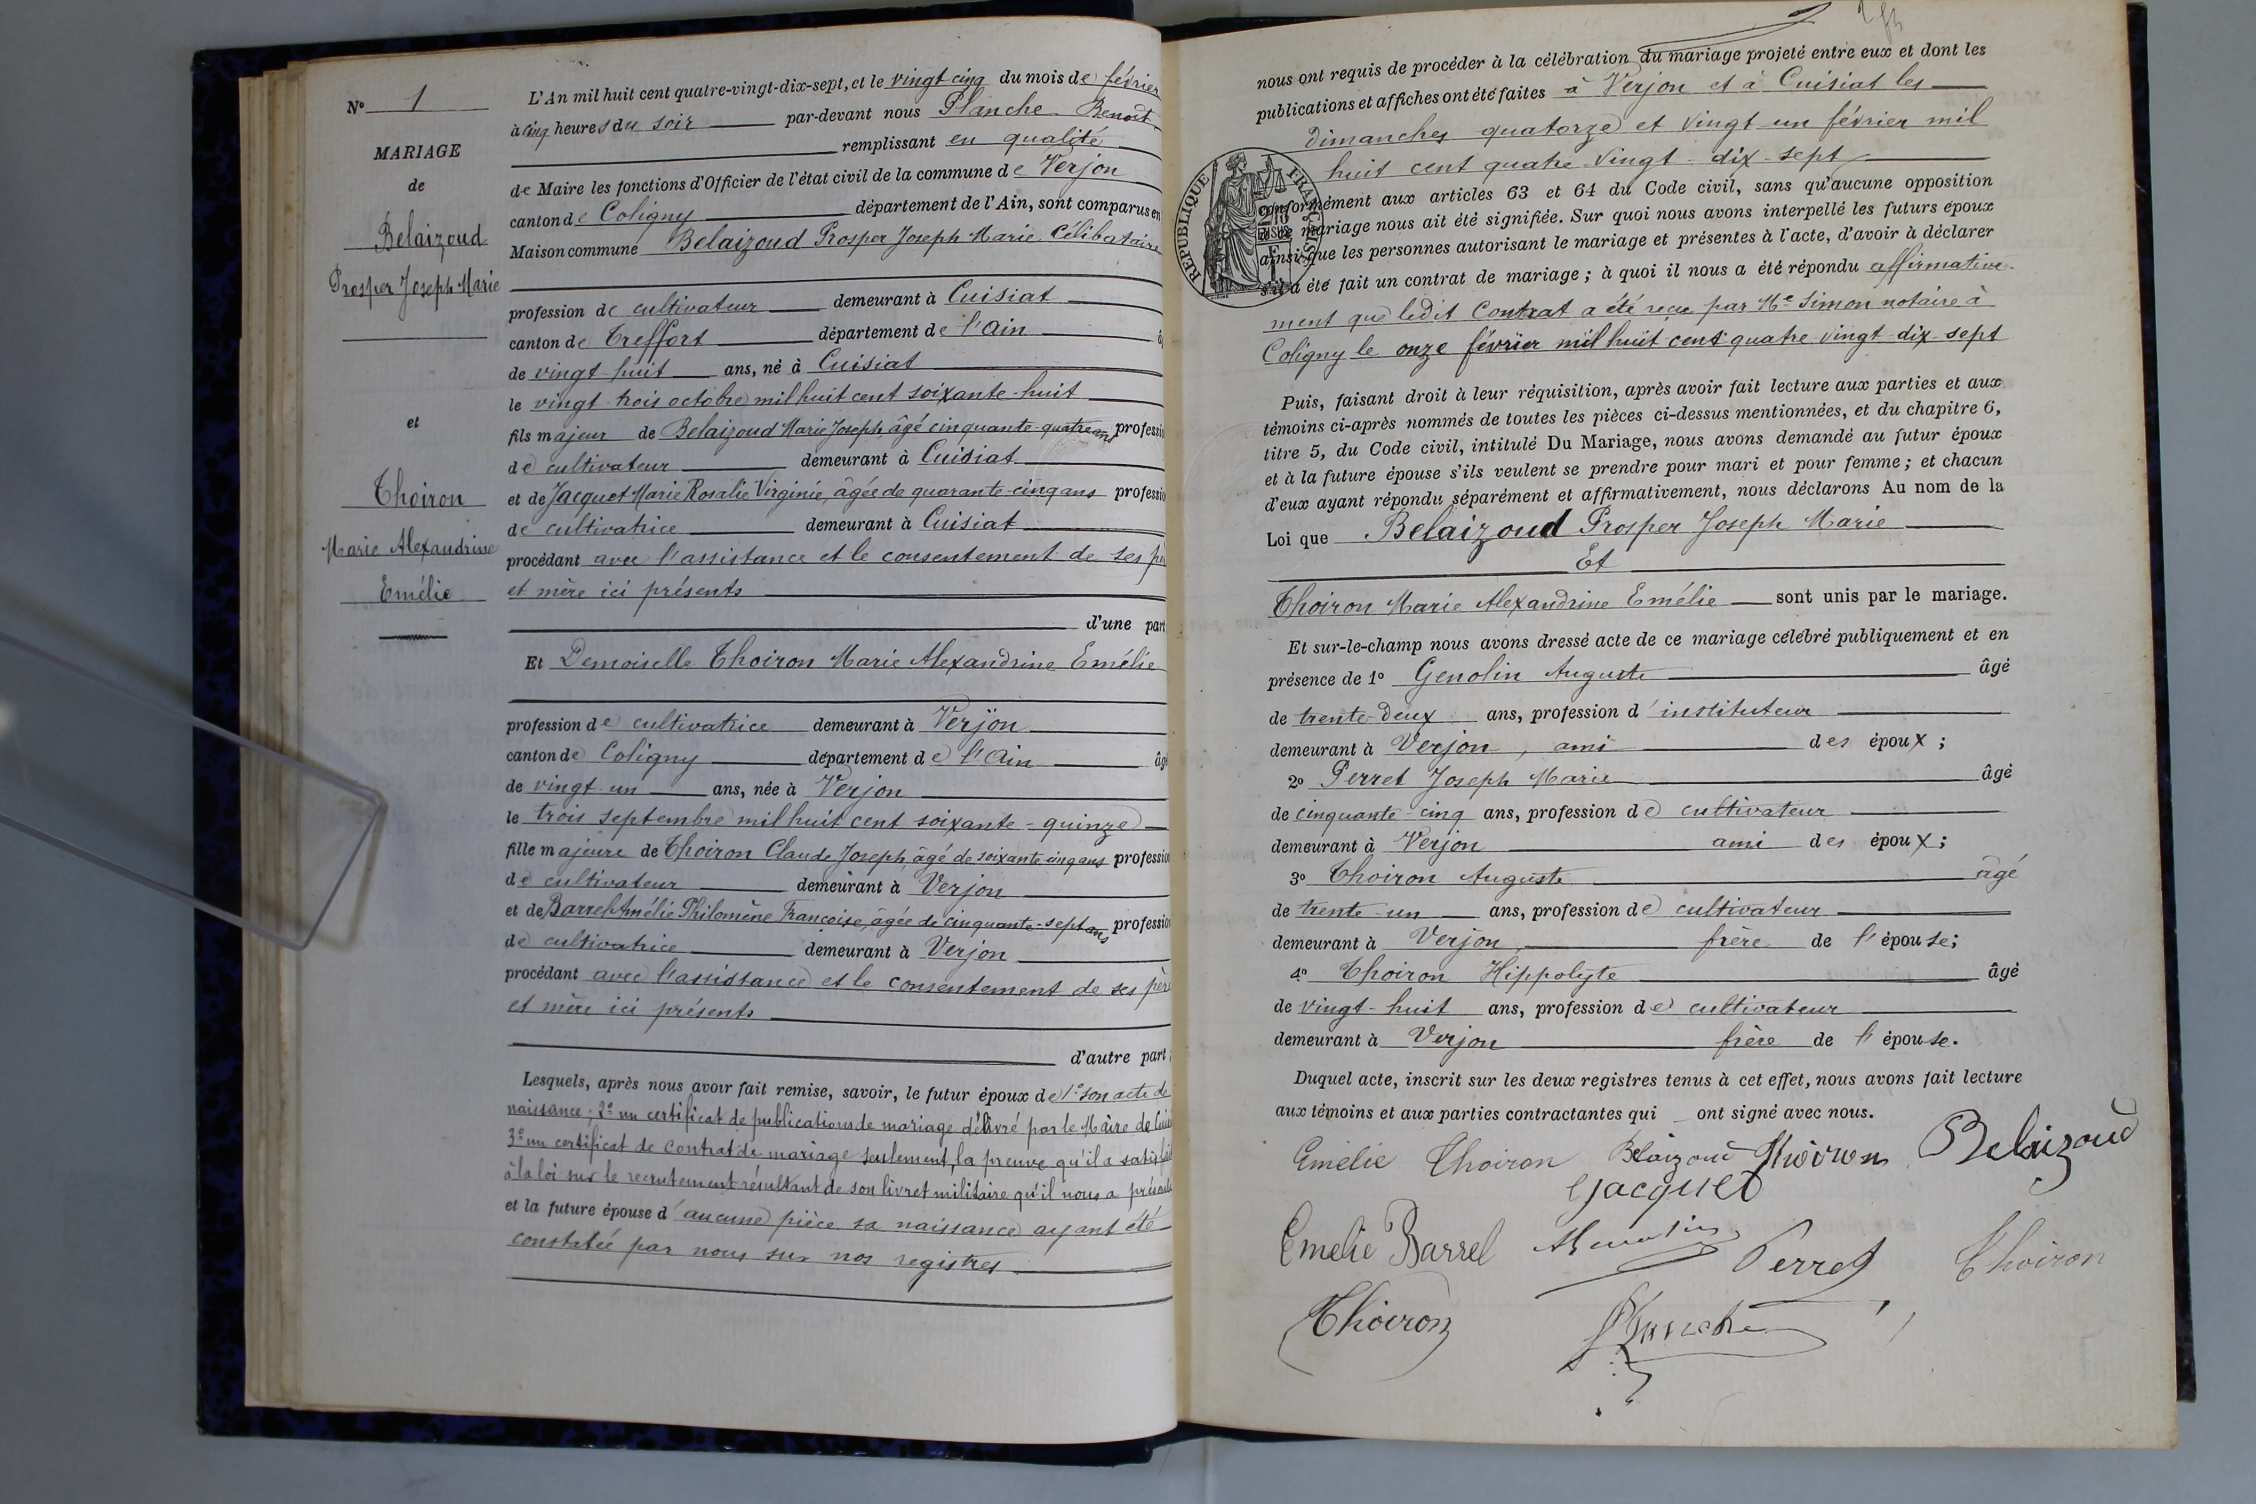 N° 1
MARIAGE
de
Belaizoud
Prosper Joseph Marie
et
Thoiron
Marie Alexandrine
Emélie
L'An mil huit cent quatre-vingt-dix-sept, et le vingt cinq du mois de février
à cinq heures du soir par-devant nous Planche Benoit
remplissant en qualité
de Maire les fonctions d'Officier de l'état civil de la commune de Verjon
canton de Coligny département de l'Ain, sont comparus en
Maison commune Belaizoud Prosper Joseph Marie Célibataire
profession de cultivateur demeurant à Cuisiat
canton de Treffort département de l'Ain
de vingt huit ans, né à Cuisiat
le vingt trois octobre mil huit cent soixante-huit
fils majeur de Belaizoud Marie Joseph, âgé cinquante-quatre ans professi
de cultivateur demeurant à Cuisiat
et de Jacquet Marie Rosalie Virginie, âgée de quarante-cinq ans professio
de cultivatrice demeurant à Cuisiat
procédant avec l'assistance et le consentement de ses pè
et mère ici présents
d'une part
Et Demoiselle Thoiron Marie Alexandrine Emélie
profession de cultivatrice demeurant à Verjon
canton de Coligny département de l'Ain âgé
de vingt-un ans, née à Verjon
le trois septembre mil huit cent soixante-quinze
fille majeure de Thoiron Claude Joseph, âgé de soixante cinq ans profession
de cultivateur demeurant à Verjon
et de Barrel Amélie Philomène Françoise, âgée de cinquante-sept ans profession
de cultivatrice demeurant à Verjon
procédant avec l'assistance et le consentement de ses père
et mère ici présents
d'autre part;
Lesquels, après nous avoir fait remise, savoir, le futur époux de 1° son acte de
naissance; 2° un certificat de publications de mariage délivré par le Maire de
3° un certificat de contrat de mariage seulement, la preuve qu'il a satisfait
à la loi sur le recrutement résultant de son livret militaire qu'il nous a présenté
et la future épouse d'aucune pièce sa naissance ayant été
constatée par nous sur nos registres
nous ont requis de procéder à la célébration du mariage projeté entre eux et dont les
publications et affiches ont été faites à Verjon et à Cuisiat les
dimanches quatorze et vingt-un février mil
huit cent quatre-vingt-dix-sept
RÉPUBLIQUE FRANÇAISE
conformément aux articles 63 et 64 du Code civil, sans qu'aucune opposition
à ce mariage nous ait été signifiée. Sur quoi nous avons interpellé les futurs époux
ainsi que les personnes autorisant le mariage et présentes à l'acte, d'avoir à déclarer
s'il a été fait un contrat de mariage; à quoi il nous a été répondu affirmative-
ment que ledit Contrat a été reçu par Me Simon notaire à
Coligny le onze février mil huit cent quatre vingt-dix-sept
Puis, faisant droit à leur réquisition, après avoir fait lecture aux parties et aux
témoins ci-après nommés de toutes les pièces ci-dessus mentionnées, et du chapitre 6,
titre 5, du Code civil, intitulé Du Mariage, nous avons demandé au futur époux
et à la future épouse s'ils veulent se prendre pour mari et pour femme; et chacun
d'eux ayant répondu séparément et affirmativement, nous déclarons Au nom de la
Loi que Belaizoud Prosper Joseph Marie
Et
Thoiron Marie Alexandrine Emélie sont unis par le mariage.
Et sur-le-champ nous avons dressé acte de ce mariage célébré publiquement et en
présence de 1° Genolin Auguste âgé
de trente-deux ans, profession d'instituteur
demeurant à Verjon, ami des époux;
2° Perret Joseph Marie âgé
de cinquante-cinq ans, profession de cultivateur
demeurant à Verjon ami des époux;
3° Thoiron Auguste âgé
de trente-un ans, profession de cultivateur
demeurant à Verjon, frère de l'épouse;
4° Thoiron Hippolyte âgé
de vingt-huit ans, profession de cultivateur
demeurant à Verjon frère de l'épouse.
Duquel acte, inscrit sur les deux registres tenus à cet effet, nous avons fait lecture
aux témoins et aux parties contractantes qui ont signé avec nous.
Emélie Thoiron Belaizoud Thoiron Belaizoud
Jacquet
Emelie Barrel Perret Thoiron
Thoiron Planche